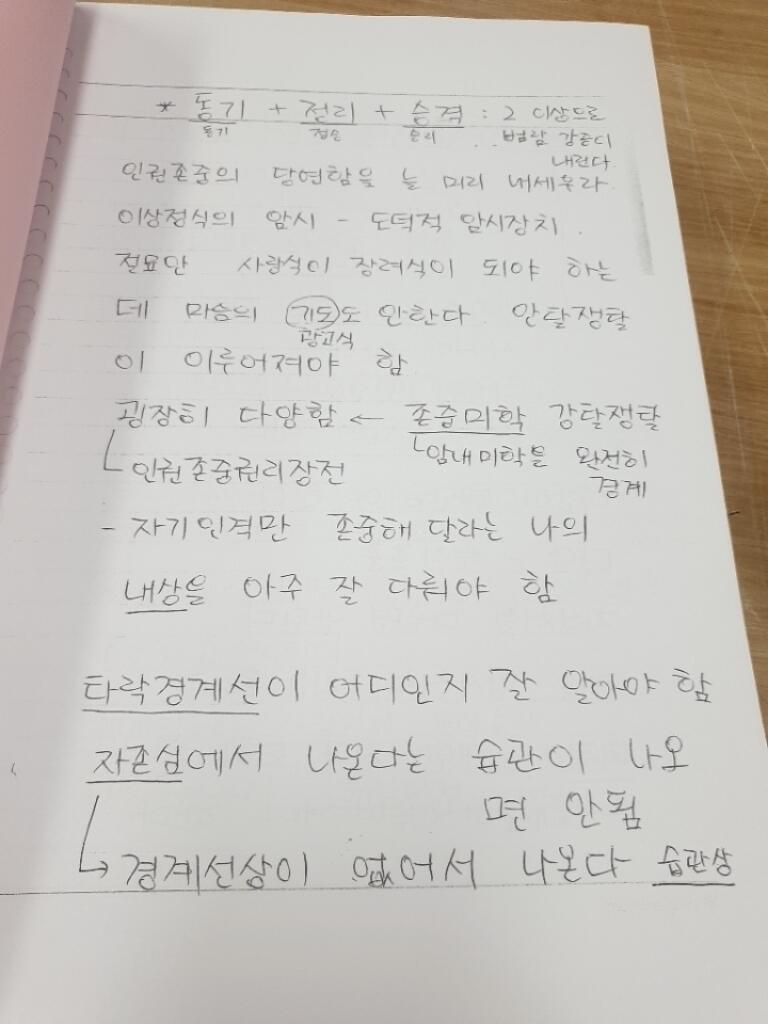 * 동기 + 정리 + 승격 : 2 이상으로
동기 겸손 순리 .. 범람 강론이
내런다.
인권존중의 당연함을 늘 미리 내세우라.
이상정식의 암시 - 도덕적 암시장치.
절묘안 사랑식이 장려식이 되야 하는
데 마음의 기도도 안한다. 안탈쟁탈
광고식
이 이루어져야 함
굉장히 다양함 ← 존중미학 강탈쟁탈
인권존중권리장전 암내미학을 완전히
경계
- 자기인격만 존중해 달라는 나의
내상을 아주 잘 다뤄야 함
타락경계선이 어디인지 잘 알아야 함
자존심에서 나온다는 습관이 나오
면 안됨
→ 경계선상이 없어서 나온다 습관상